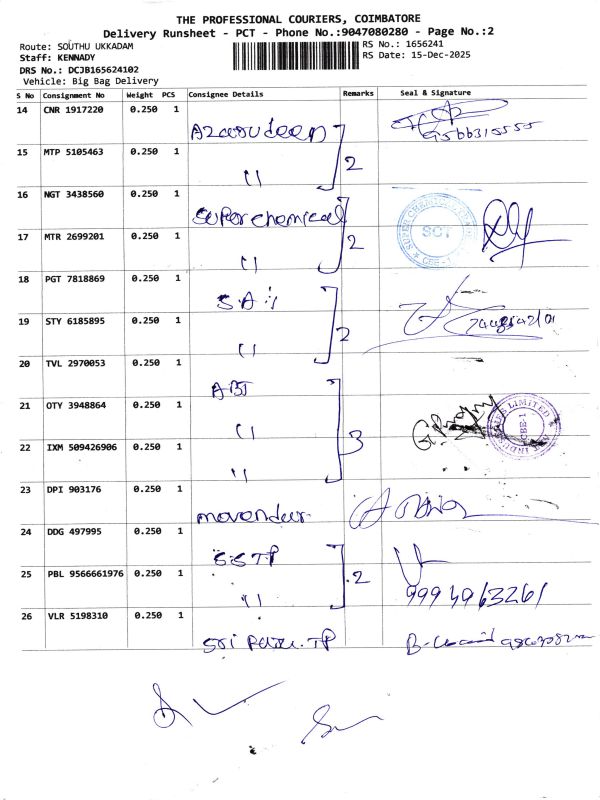 THE PROFESSIONAL COURIERS, COIMBATORE
Delivery Runsheet - PCT - Phone No.:9047080280 - Page No.:2
Route: SOUTHU UKKADAM
RS No.: 1656241
Staff: KENNADY
RS Date: 15-Dec-2025
DRS No.: DCJB165624102
Vehicle: Big Bag Delivery
S No Consignment No Weight PCS Consignee Details Remarks Seal & Signature
14 CNR 1917220 0.250 1 Azarudeen
15 MTP 5105463 0.250 1 " 2
16 NGT 3438560 0.250 1 Super chemical
17 MTR 2699201 0.250 1 " 2 SCT
18 PGT 7818869 0.250 1 S.A.i
19 STY 6185895 0.250 1 " 2
20 TVL 2970053 0.250 1 ABT
21 OTY 3948864 0.250 1 " CBE-1
22 IXM 509426906 0.250 1 " 3
23 DPI 903176 0.250 1
24 DDG 497995 0.250 1 SSTP
25 PBL 9566661976 0.250 1 " 2 9994963261
26 VLR 5198310 0.250 1 Sri